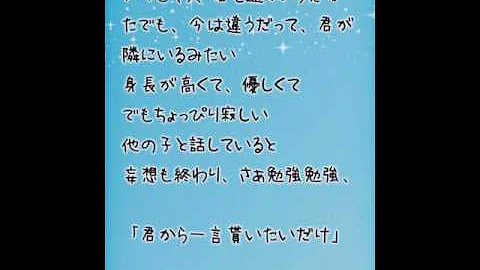 たでも、今は違うだって、君が
隣にいるみたい
身長が高くて、優しくて
でもちょっぴり寂しい
他の子と話していると
妄想も終わり、さぁ勉強勉強、
「君から一言貰いたいだけ」